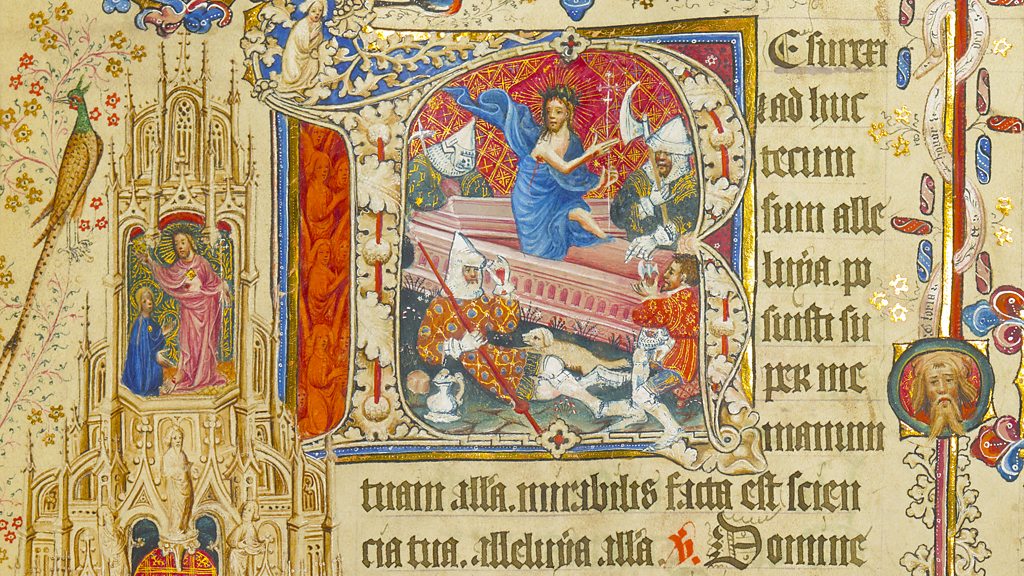 REsurrexi
& ad huc
tecum
sum alle
luya. po
suisti su
per me
manum
tuam alla. mirabilis facta est scien
cia tua. alleluya alla. V. Domine